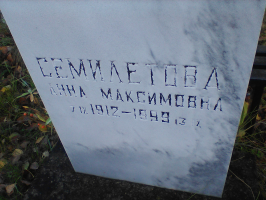 СЕМИЛЕТОВА
АННА МАКСИМОВНА
1912-1999